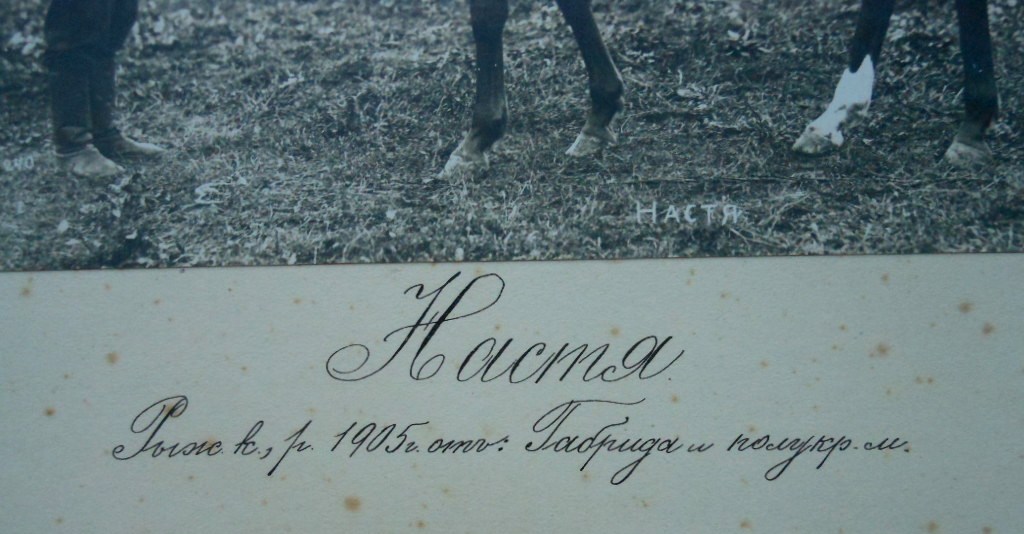 НАСТЯ
Настя.
Рыж. к., р. 1905 г. отъ: Габрида и полукр. м.